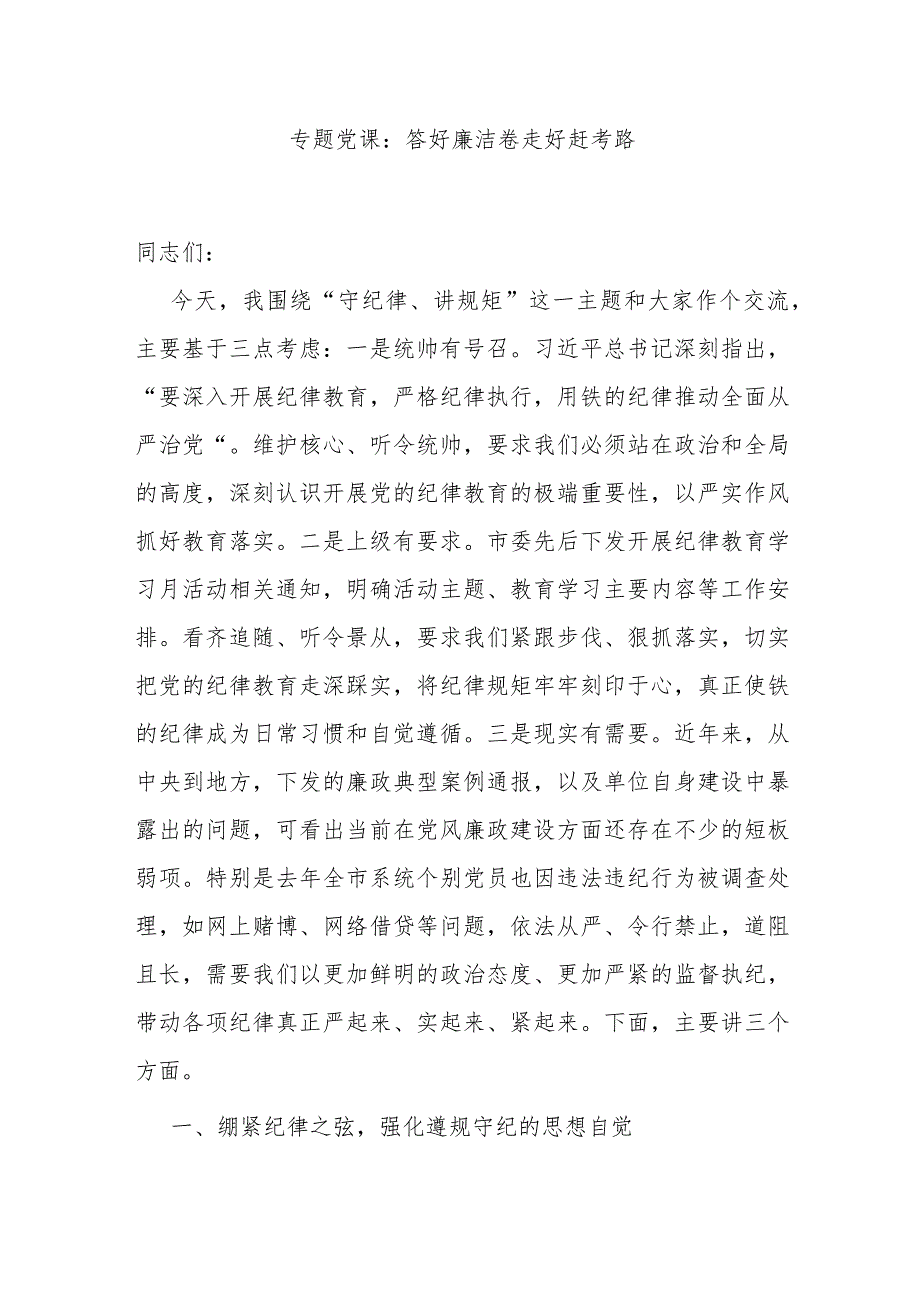 专题党课：答好廉洁卷走好赶考路
同志们：
今天，我围绕“守纪律、讲规矩”这一主题和大家作个交流，
主要基于三点考虑：一是统帅有号召。习近平总书记深刻指出，
“要深入开展纪律教育，严格纪律执行，用铁的纪律推动全面从
严治党“。维护核心、听令统帅，要求我们必须站在政治和全局
的高度，深刻认识开展党的纪律教育的极端重要性，以严实作风
抓好教育落实。二是上级有要求。市委先后下发开展纪律教育学
习月活动相关通知，明确活动主题、教育学习主要内容等工作安
排。看齐追随、听令景从，要求我们紧跟步伐、狠抓落实，切实
把党的纪律教育走深踩实，将纪律规矩牢牢刻印于心，真正使铁
的纪律成为日常习惯和自觉遵循。三是现实有需要。近年来，从
中央到地方，下发的廉政典型案例通报，以及单位自身建设中暴
露出的问题，可看出当前在党风廉政建设方面还存在不少的短板
弱项。特别是去年全市系统个别党员也因违法违纪行为被调查处
理，如网上赌博、网络借贷等问题，依法从严、令行禁止，道阻
且长，需要我们以更加鲜明的政治态度、更加严紧的监督执纪，
带动各项纪律真正严起来、实起来、紧起来。下面，主要讲三个
方面。
一、绷紧纪律之弦，强化遵规守纪的思想自觉